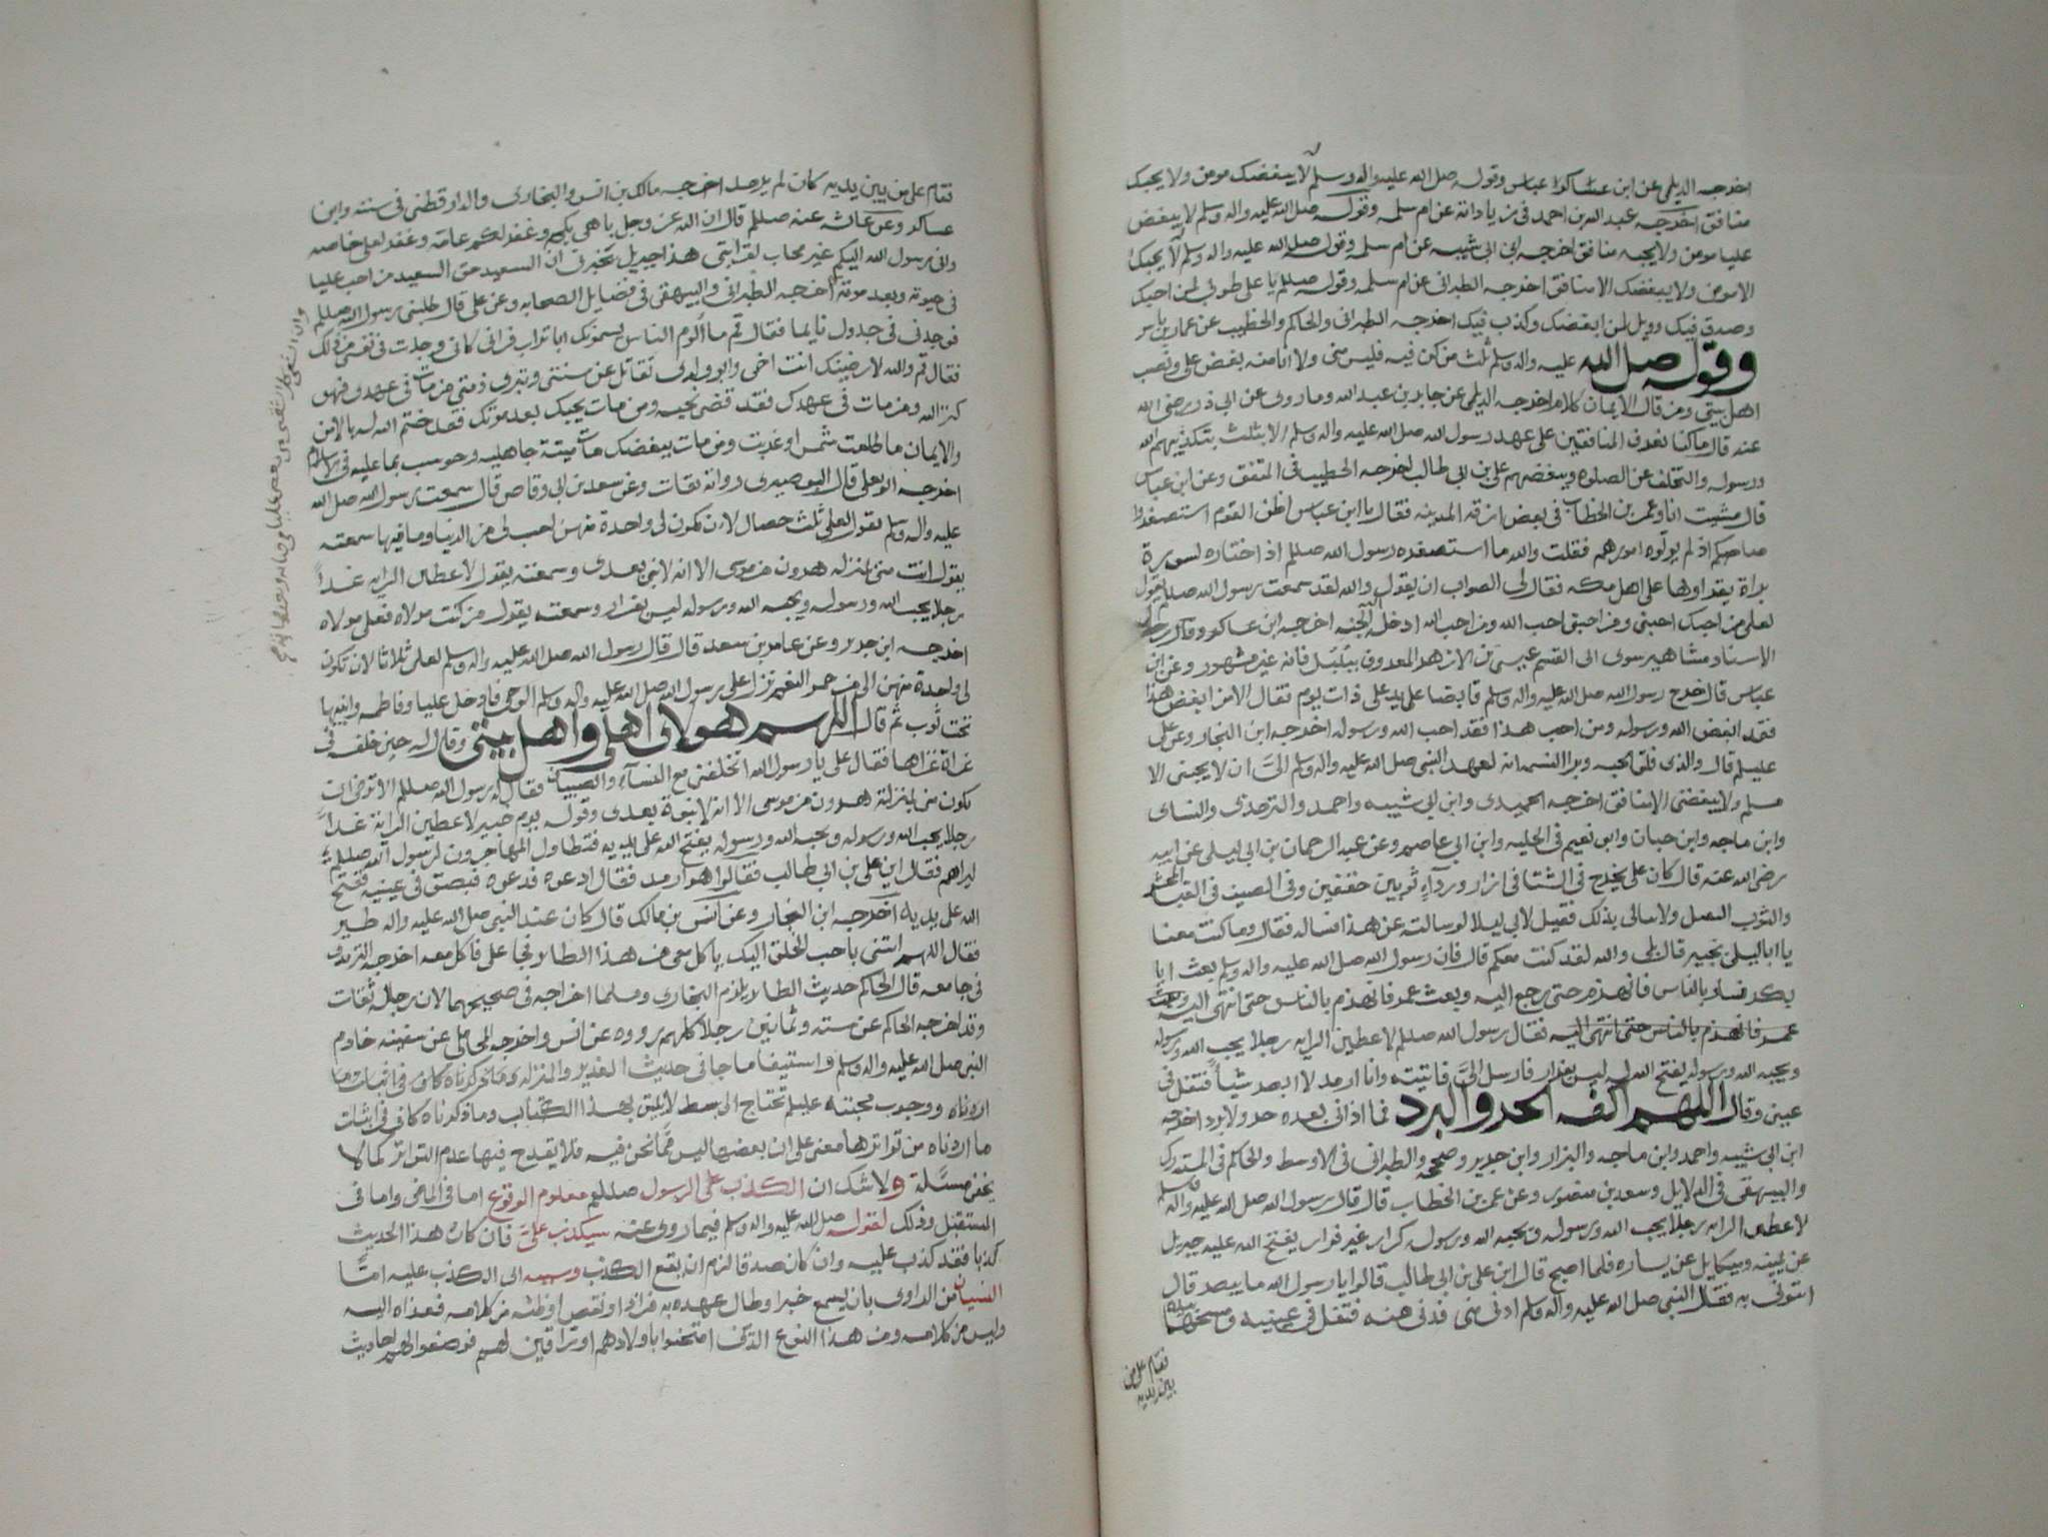 اخرجه الديلمى عن ابن عباس وقوله صلى الله عليه واله وسلم لا يبغضك مومن ولا يحبك
منافق اخرجه عبد الله بن احمد فى زياداته عن ام سلمه وقوله صلى الله عليه واله وسلم لا يبغض
عليا مومن ولا يحبه منافق اخرجه ابن ابى شيبه عن ام سلمه وقوله صلى الله عليه واله وسلم لا يحبك
الا مومن ولا يبغضك الا منافق اخرجه الطبرانى عن ام سلمه وقوله صللم يا على طوبى لمن احبك
وصدق فيك وويل لمن ابغضك وكذب فيك اخرجه الطبرانى والحاكم والخطيب عن عمار بن ياسر
وقوله صلى الله عليه واله وسلم ثلث من كن فيه فليس منى ولا انا منه بغض على ونصب
اهل بيتى ومن قال الايمان كلام اخرجه الديلمى عن جابر بن عبد الله وما روى عن ابى ذر رضى الله
عنه قال ما كنا نعرف المنافقين على عهد رسول الله صلى الله عليه واله وسلم الا بثلث بتكذيبهم الله
ورسوله والتخلف عن الصلوه وببغضهم على بن ابى طالب اخرجه الخطيب فى المتفق وعن ابن عباس
قال مشيت انا وعمر بن الخطاب فى بعض ازقه المدينه فقال يا ابن عباس اظن القوم استصغروا
صاحبكم اذ لم يولوه اموركم فقلت والله ما استصغره رسول الله صللم اذ اختاره لسورة
براة يقراوها على اهل مكه فقال لى الصواب ان يقول والله لقد سمعت رسول الله صللم يقول
لعلى من احبك احبنى ومن احبنى احب الله ومن احب الله ادخله الجنه اخرجه ابن عساكر وقال رجال
الاسناد مشاهير سوى ابى القسم عيسى بن الازهر المعروف ببلبل فانه غير مشهور وعن ابن
عباس قال خرج رسول الله صلى الله عليه واله وسلم قابضا على يد على ذات يوم فقال الا من ابغض هذا
فقد ابغض الله ورسوله ومن احب هذا فقد احب الله ورسوله اخرجه ابن النجار وعن على
عليلم قال والذى فلق الحبه وبرا النسمه انه لعهد النبى صلى الله عليه واله وسلم الىّ ان لا يحبنى الا
مسلم ولا يبغضنى الا منافق اخرجه الحميدى وابن ابى شيبه واحمد والترمذى والنساى
وابن ماجه وابن حبان وابو نعيم فى الحليه وابن ابى عاصم وعن عبد الرحمان بن ابى ليلى عن ابيه
رضى الله عنه قال كان على يخرج فى الشتا فى ازار ورداء ثوبين خفيفين وفى الصيف فى القبا المحشو
والثوب الثقيل ولا يبالى بذلك فقيل لابى ليلا لو سالته عن هذا فساله فقال وما كنت معنا
يا ابا ليلى بخيبر قال بلى والله لقد كنت معكم قال فان رسول الله صلى الله عليه واله وسلم بعث ابا
بكر فسار بالناس فانهزم حتى رجع اليه وبعث عمر فانهزم بالناس حتى انتهى اليه وبعث
عمر فانهزم بالناس حتى انتهى اليه فقال رسول الله صللم لاعطين الرايه رجلا يحب الله ورسوله
ويحبه الله ورسوله يفتح الله له ليس بفرار فارسل الىّ فاتيته وانا ارمد لا ابصر شياً فتفل فى
عينى وقال اللهم اكفه الحر والبرد فما اذانى بعده حر ولا برد اخرجه
ابن ابى شيبه واحمد وابن ماجه والبزار وابن جرير وصححه والطبرانى فى الاوسط والحاكم فى المستدرك
والبيهقى فى الدلايل وسعد بن منصور وعن عمر بن الخطاب قال قال رسول الله صلى الله عليه واله وسلم
لاعطى الرايه رجلا يحب الله ورسوله ويحبه الله ورسوله كرار غير فرار يفتح الله عليه جبريل
عن يمينه وميكايل عن يساره فلما اصبح قال اين على بن ابى طالب قالوا يا رسول الله ما يبصر قال
ايتونى به فقال النبى صلى الله عليه واله وسلم ادن منى فدنى منه فتفل فى عينيه ومسحهما بيده
فقام على من
بين يديه
فقام على من بين يديه كان لم يرمد اخرجه مالك بن انس والبخارى والدارقطنى فى سننه وابن
عساكر وعن عائشه عنه صللم قال ان الله عز وجل باهى بكم وغفر لكم عامه وغفر لعلى خاصه
وانى رسول الله اليكم غير محاب لقرابتى هذا جبريل يخبرنى ان السعيد حق السعيد من احب عليا
فى حيوته وبعد موته اخرجه الطبرانى والبيهقى فى فضايل الصحابه وعن على قال طلبنى رسول الله صللم
فوجدنى فى جدول نايما فقال قم ما الوم الناس يسمونك ابا تراب فرانى كانى وجدت فى نفسى من ذلك
فقال قم والله لارضينك انت اخى وابو ولدى تقاتل عن سنتى وتبرى ذمتى من مات فى عهدى فهو
كنز الله ومن مات فى عهدك فقد قضى نحبه ومن مات يحبك بعد موتك فقد ختم الله له بالامن
والايمان ما طلعت شمس او غربت ومن مات يبغضك مات ميتة جاهليه وحوسب بما عليه فى الاسلام
اخرجه ابو يعلى قال البوصيرى رواته ثقات وعن سعد بن ابى وقاص قال سمعت رسول الله صلى الله
عليه واله وسلم يقول لعلى ثلث خصال لان تكون لى واحدة منهن احب الى من الدنيا وما فيها سمعته
يقول انت منى بمنزله هرون من موسى الا انه لا نبى بعدى وسمعته يقول لاعطين الرايه غداً
رجلا يحب الله ورسوله ويحبه الله ورسوله ليس بفرار وسمعته يقول من كنت مولاه فعلى مولاه
اخرجه ابن جرير وعن عامر بن سعد قال قال رسول الله صلى الله عليه واله وسلم لعلى ثلاثا لان تكون
لى واحدة منهن الى من حمر النعم نزل على رسول الله صلى الله عليه واله وسلم الوحى فادخل عليا وفاطمه وابنيها
تحت ثوب ثم قال اللهم هولاى اهلى واهل بيتى وقال له حين خلفه فى
غزاة غزاها فقال على يا رسول الله اتخلفنى مع النساء والصبيان فقال له رسول الله صللم الا ترضى ان
تكون منى بمنزلة هرون من موسى الا انه لا نبوة بعدى وقوله يوم خيبر لاعطين الراية غداً
رجلا يحب الله ورسوله ويحبه الله ورسوله يفتح الله على يديه فتطاول المهاجرون لرسول الله صللم
ليراهم فقال اين على بن ابى طالب فقالوا هو ارمد فقال ادعوه فدعوه فبصق فى عينيه ففتح
الله على يديه اخرجه ابن النجار وعن انس بن مالك قال كان عند النبى صلى الله عليه واله طير
فقال اللهم ايتنى باحب الخلق اليك ياكل معى من هذا الطاير فجا على فاكل معه اخرجه الترمذى
فى جامعه قال الحاكم حديث الطاير يلزم البخارى ومسلما اخراجه فى صحيحيهما لان رجاله ثقات
وقد اخرجه الحاكم عن سته وثمانين رجلا كلهم رووه عن انس واخرجه المحاملى عن سفينه خادم
النبى صلى الله عليه واله وسلم واستيفا ما جا فى حديث الغدير والمنزله وما ذكرناه كاف فى اثبات ما
اردناه ووجوب محبته عليلم تحتاج الى بسط لا يليق بهذا الكتاب وما ذكرناه كافى فى اثبات
ما اردناه من تواترها معنى على ان بعضها ليس مما نحن فيه فلا يقدح فيها عدم التواتر كما لا
يخفى مسئلة ولا شك ان الكذب على الرسول صللم معلوم الوقوع اما فى الماضى واما فى
المستقبل وذلك لقوله صلى الله عليه واله وسلم فيما روى عنه سيكذب علىّ فان كان هذا الحديث
كذبا فقد كذب عليه وان كان صدقا لزم ان يقع الكذب وسببه اى الكذب عليه امّا
النسيان من الراوى بان يسمع خبرا وطال عهده به فزاد او نقص او ظنه من كلامه فعزاه اليه
وليس من كلامه ومن هذا النوع الذين امتحنوا باولادهم او وراقين لهم فوضعوا لهم احاديث